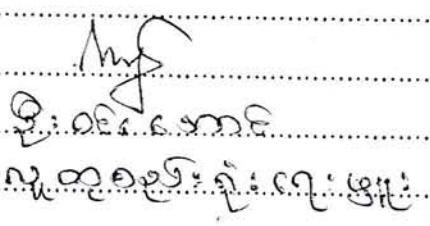 ဦးဝင်းအောင်
လူထုစည်းရုံးရေးမှူး